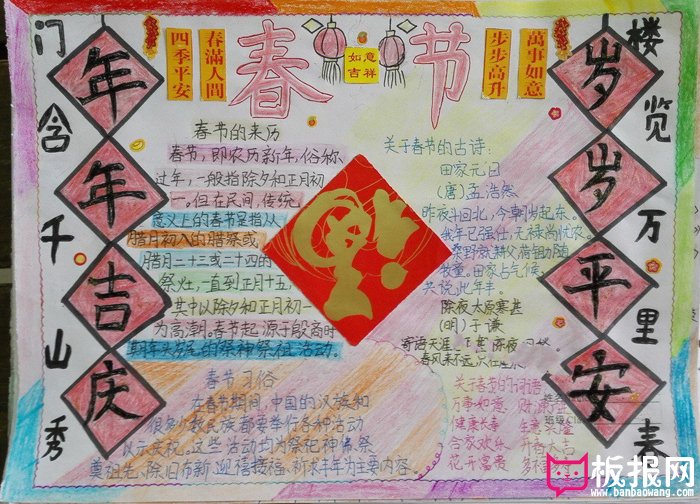 春节
四季平安
春滿人間
如意
吉祥
步步高升
萬事如意
门含千山秀
楼览万里
年年吉庆
岁岁平安
春节的来历
春节,即农历新年,俗称
过年,一般指除夕和正月初
一。但在民间,传统
意义上的春节是指从
腊月初八的腊祭或
腊月二十三或二十四的
祭灶,一直到正月十五,
其中以除夕和正月初一
为高潮。春节起源于殷商时
期年头岁尾的祭神祭祖活动。
春节习俗
在春节期间,中国的汉族和
很多少数民族都要举行各种活动
以示庆祝。这些活动均为祭祀神佛、祭
奠祖先、除旧布新、迎禧接福、祈求丰年为主要内容。
关于春节的古诗:
田家元日
(唐)孟浩然
昨夜斗回北,今朝岁起东。
我年已强仕,无禄尚忧农。
桑野就耕父,荷锄随
牧童。田家占气候,
共说此年丰。
除夜太原寒甚
(明)于谦
寄语天涯
春风来不远,只在
关于春节的词语
万事如意
健康长寿
合家欢乐
花开富贵
板报网
www.banbaowang.com